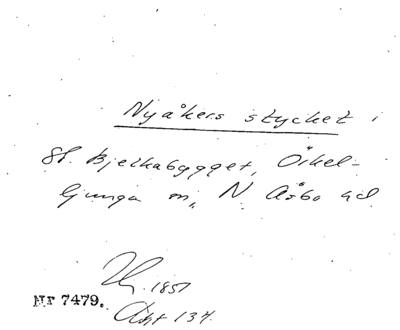 Nyåkers stycket i
St. Bjelkabygget, Örkel-
ljunga sn, N Åsbo hd
1851
Akt 134.
Nr 7479.